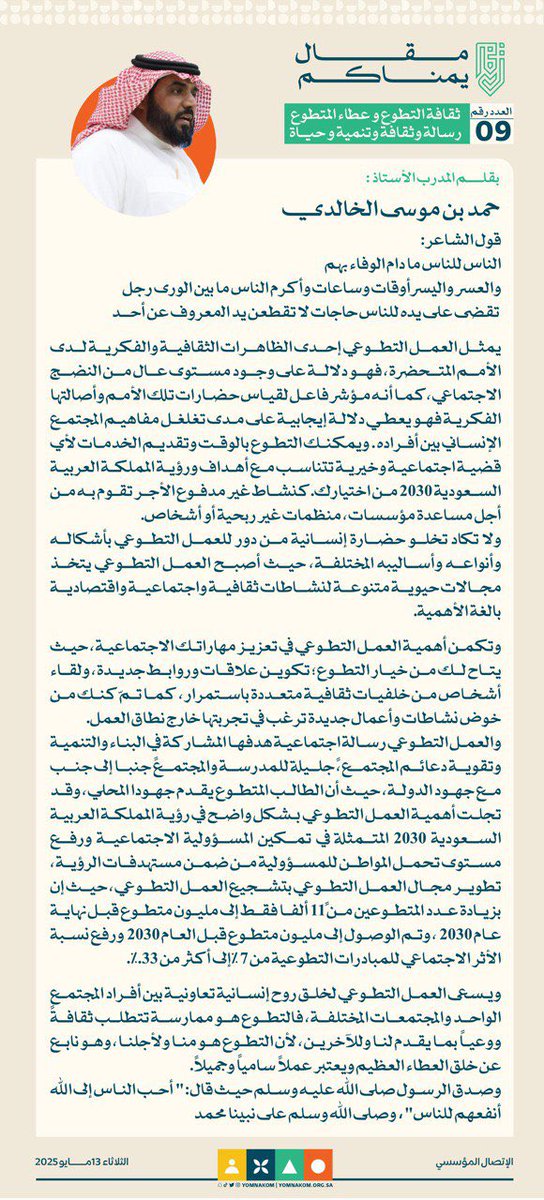 مقال
يمناكم
العدد رقم
09
ثقافة التطوع وعطاء المتطوع
رسالة وثقافة وتنمية وحياة
بقلم المدرب الأستاذ :
حمد بن موسى الخالدي
قول الشاعر:
الناس للناس ما دام الوفاء بهم
والعسر واليسر أوقات وساعات وأكرم الناس ما بين الورى رجل
تقضى على يده للناس حاجات لا تقطعن يد المعروف عن أحد
يمثل العمل التطوعي إحدى الظاهرات الثقافية والفكرية لدى
الأمم المتحضرة، فهو دلالة على وجود مستوى عال من النضج
الاجتماعي، كما أنه مؤشر فاعل لقياس حضارات تلك الأمم وأصالتها
الفكرية فهو يعطي دلالة إيجابية على مدى تغلغل مفاهيم المجتمع
الإنساني بين أفراده. ويمكنك التطوع بالوقت وتقديم الخدمات لأي
قضية اجتماعية وخيرية تتناسب مع أهداف ورؤية المملكة العربية
السعودية 2030 من اختيارك. كنشاط غير مدفوع الأجر تقوم به من
أجل مساعدة مؤسسات، منظمات غير ربحية أو أشخاص.
ولا تكاد تخلو حضارة إنسانية من دور للعمل التطوعي بأشكاله
وأنواعه وأساليبه المختلفة، حيث أصبح العمل التطوعي يتخذ
مجالات حيوية متنوعة لنشاطات ثقافية واجتماعية واقتصادية
بالغة الأهمية.
وتكمن أهمية العمل التطوعي في تعزيز مهاراتك الاجتماعية، حيث
يتاح لك من خيار التطوع؛ تكوين علاقات وروابط جديدة، ولقاء
أشخاص من خلفيات ثقافية متعددة باستمرار، كما تمّ كنك من
خوض نشاطات وأعمال جديدة ترغب في تجربتها خارج نطاق العمل.
والعمل التطوعي رسالة اجتماعية هدفها المشاركة في البناء والتنمية
وتقوية دعائم المجتمع ،ً جليلة للمدرسة والمجتمعً جنبا إلى جنب
مع جهود الدولة، حيث أن الطالب المتطوع يقدم جهودا المحلي، وقد
تجلت أهمية العمل التطوعي بشكل واضح في رؤية المملكة العربية
السعودية 2030 المتمثلة في تمكين المسؤولية الاجتماعية ورفع
مستوى تحمل المواطن للمسؤولية من ضمن مستهدفات الرؤية،
تطوير مجال العمل التطوعي بتشجيع العمل التطوعي، حيث إن
بزيادة عدد المتطوعين منً 11 ألفا فقط إلى مليون متطوع قبل نهاية
عام 2030 ، وتم الوصول إلى مليون متطوع قبل العام 2030 ورفع نسبة
الأثر الاجتماعي للمبادرات التطوعية من 7 ٪ إلى أكثر من 33 ٪.
ويسعى العمل التطوعي لخلق روح إنسانية تعاونية بين أفراد المجتمع
الواحد والمجتمعات المختلفة، فالتطوع هو ممارسة تتطلب ثقافةً
ووعياً بما يقدم لنا وللآخرين، لأن التطوع هو منا ولأجلنا، وهو نابع
عن خلق العطاء العظيم ويعتبر عملاً سامياً وجميلاً.
وصدق الرسول صلى الله عليه وسلم حيث قال: " أحب الناس إلى الله
أنفعهم للناس"، وصلى الله وسلم على نبينا محمد
الإتصال المؤسسي
YOMNAKOM | YOMNAKOM.ORG.SA
الثلاثاء 13 مايو 2025